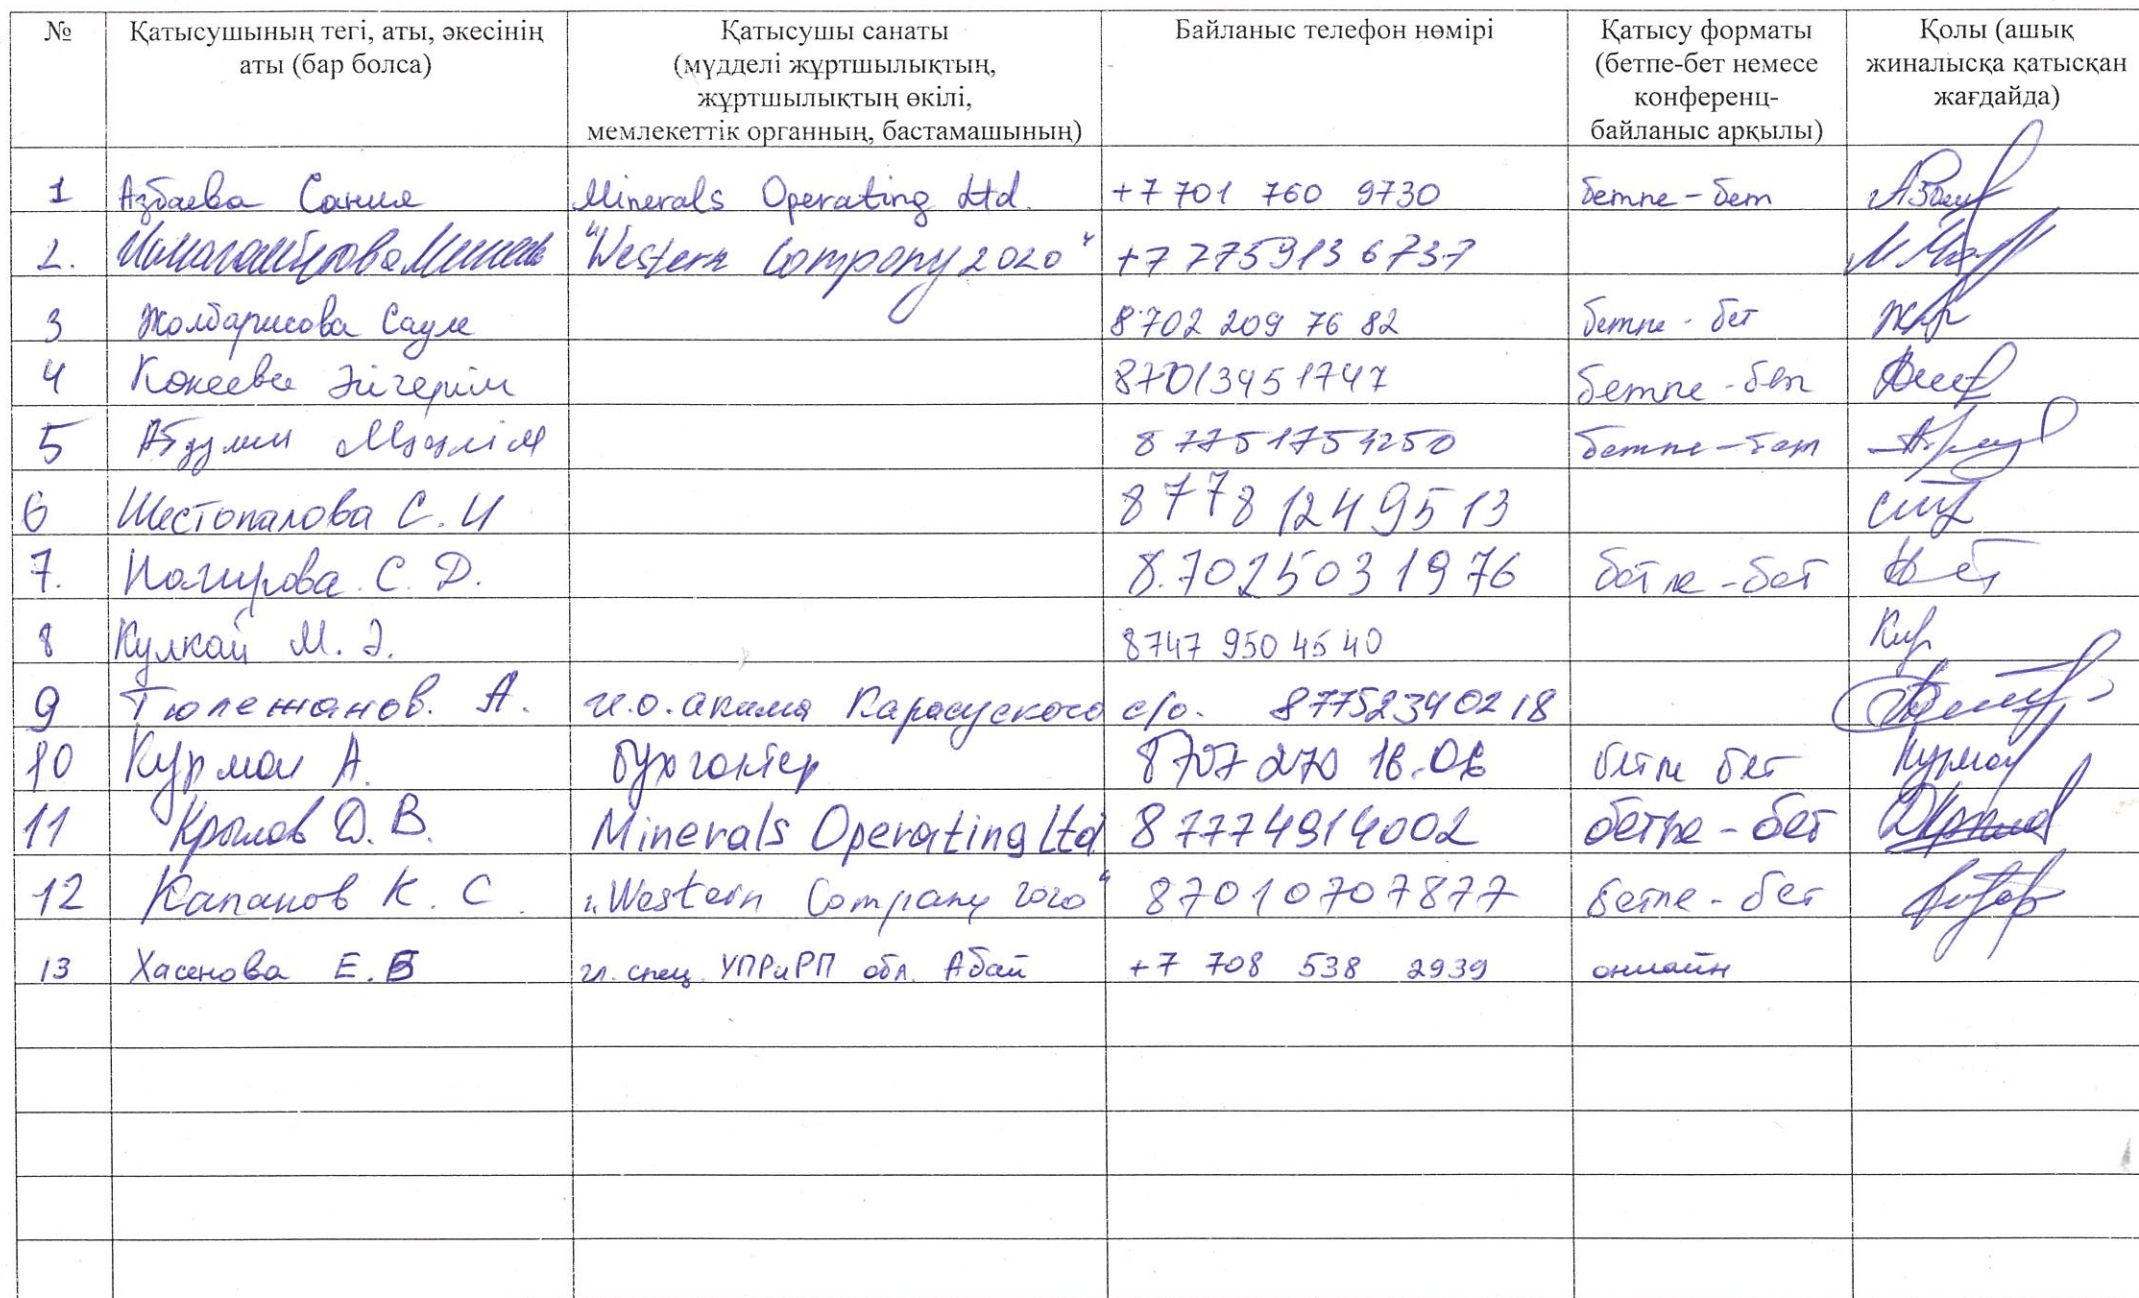 №
Қатысушының тегі, аты, әкесінің
аты (бар болса)
Қатысушы санаты
(мүдделі жұртшылықтың,
жұртшылықтың өкілі,
мемлекеттік органның, бастамашының)
Байланыс телефон нөмірі
Қатысу форматы
(бетпе-бет немесе
конференц-
байланыс арқылы)
Қолы (ашық
жиналысқа қатысқан
жағдайда)
1 Азбаева Сания Minerals Operating Ltd. +7 701 760 9730 бетпе-бет
2. "Western Company 2020" +7 775 913 6737
3 Жолбарисова Сауле 8 702 209 76 82 бетпе-бет
4 Кокеева Әйгерім 87013451747 бетпе-бет
5 87751754250 бетпе-бет
6 Шестопалова С. И 8778 1249513
7. С. Д. 8.7025031976 бетпе-бет
8 Кулкай М. Ә. 8747 950 45 40
9 Тюлежанов. А. и.о. акима Карасуского с/о. 87752340218
10 Курман А. бухгалтер 8707 270 16.06 бетпе бет Курман
11 Крылов Д. В. Minerals Operating Ltd 87774914002 бетпе-бет
12 Капанов К. С. "Western Company 2020" 87010707877 бетпе-бет
13 Хасенова Е.Б гл. спец. УПРиРП обл. Абай +7 708 538 2939 онлайн